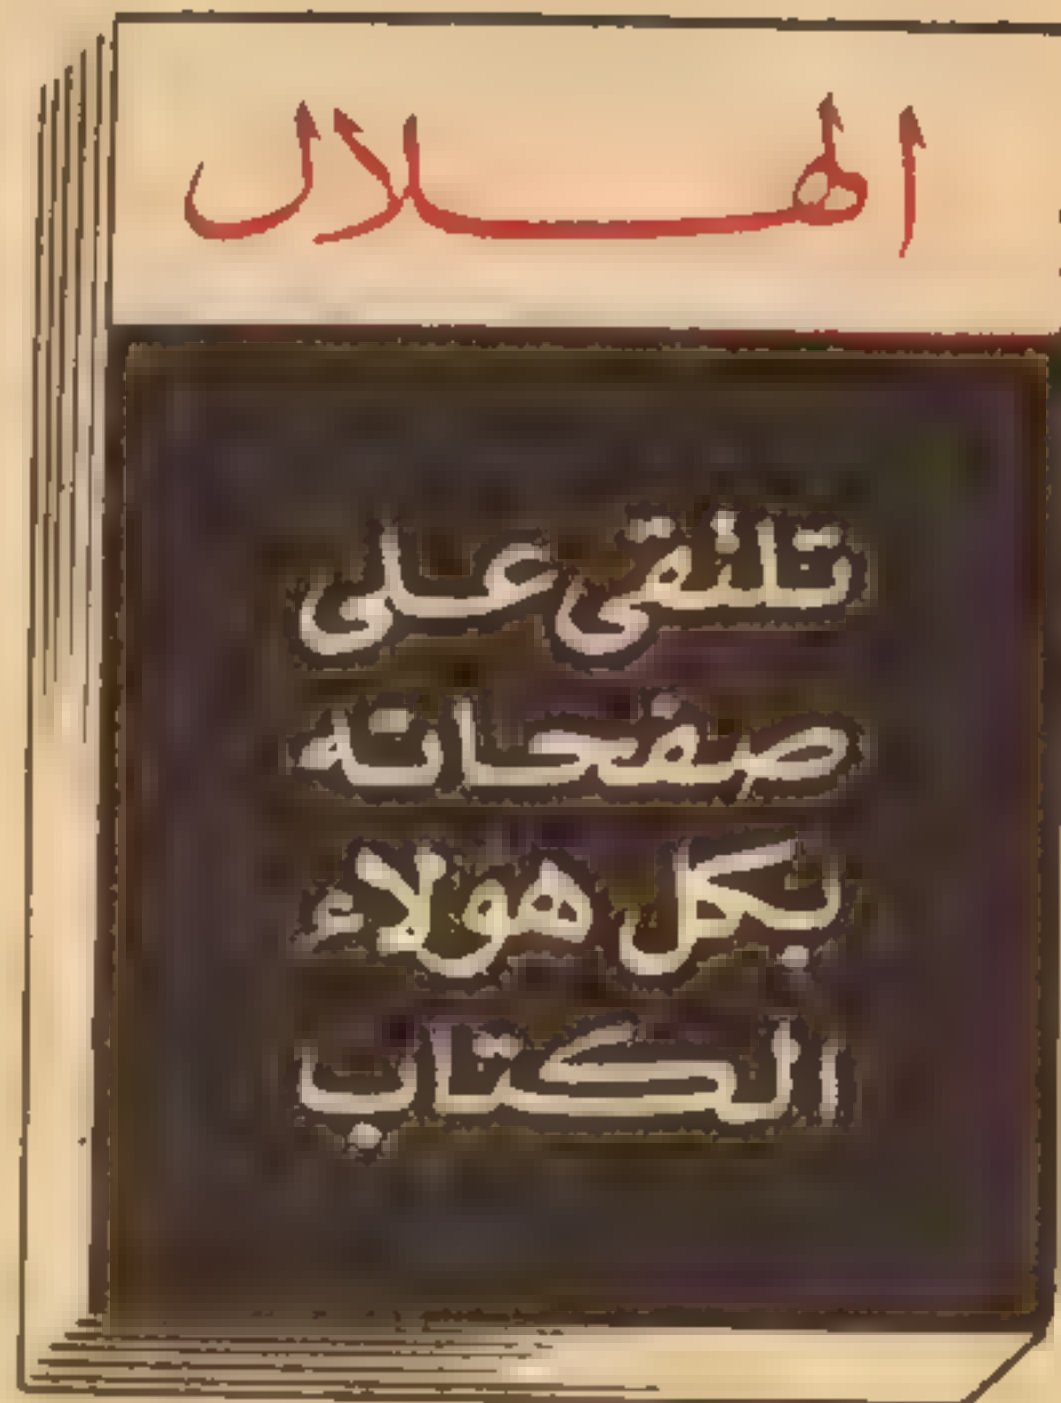 الهلال
تلتقى على
صفحاته
بكل هولاء
الكتاب